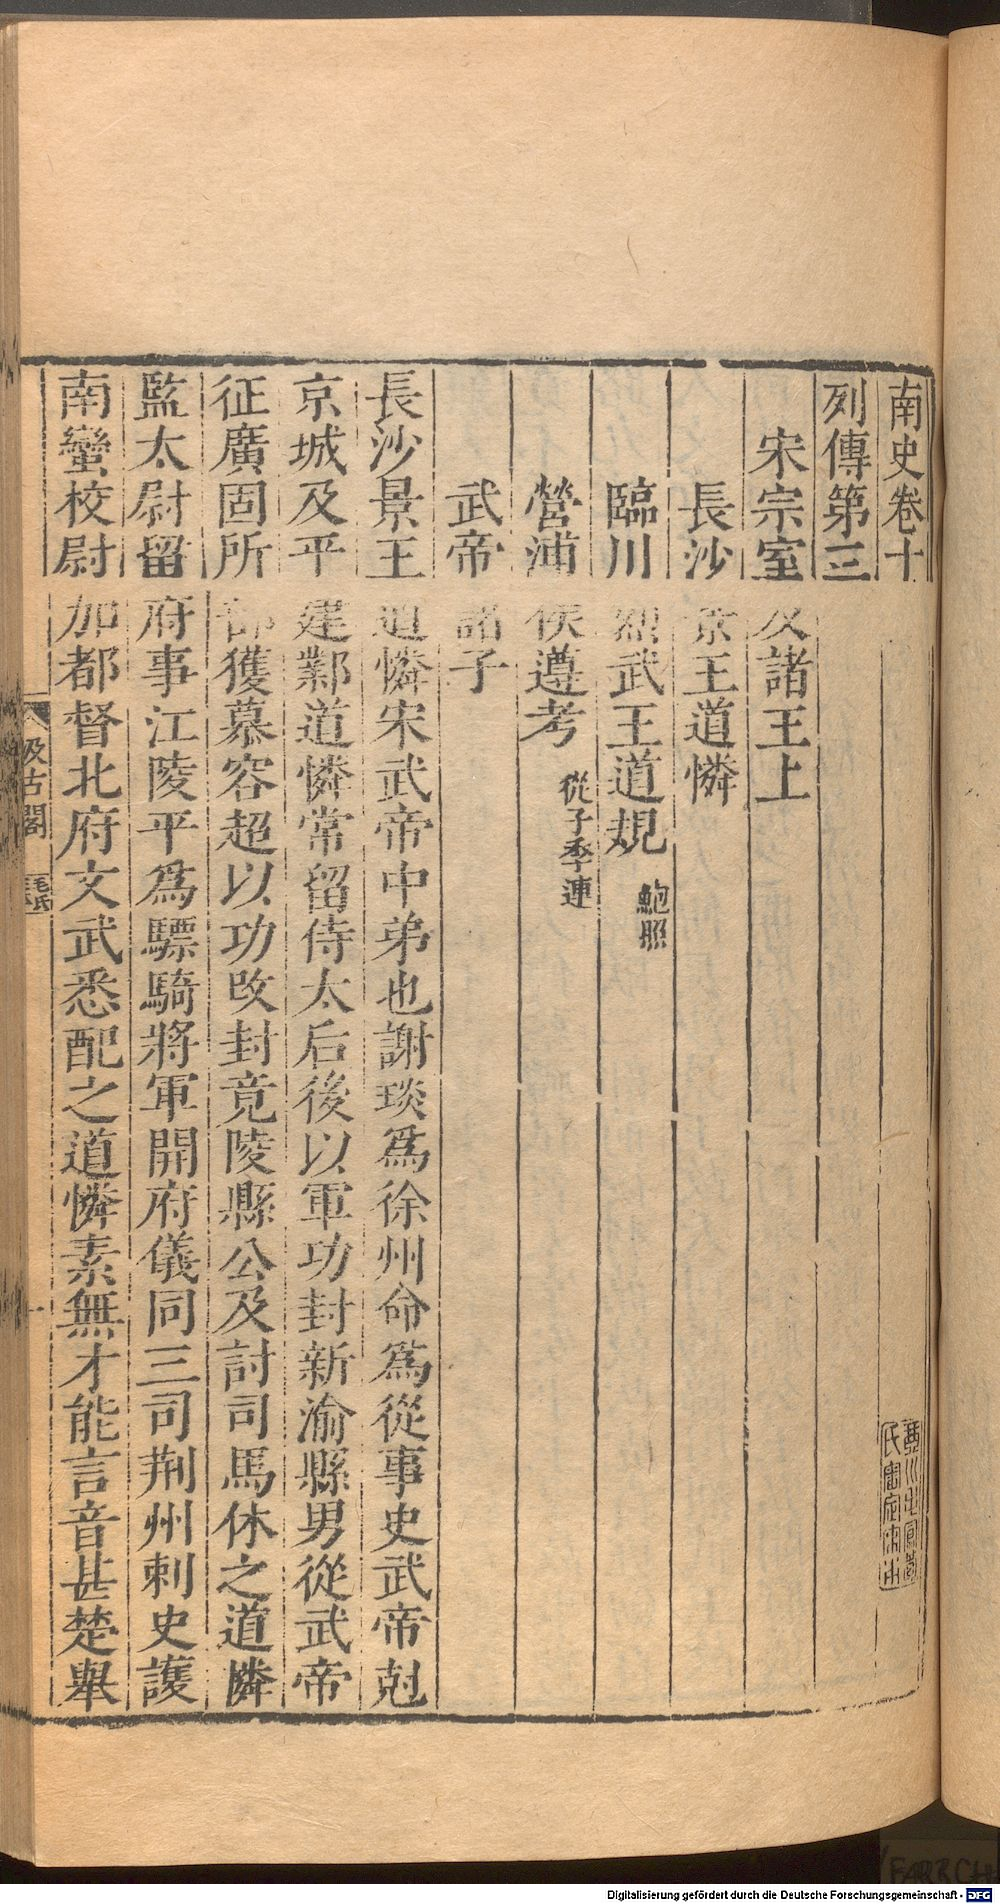 南史卷十
列傳第三
宋宗室及諸王上
長沙景王道憐
臨川烈武王道規 鮑照
營浦侯遵考 從子季連
武帝諸子
長沙景王道憐宋武帝中弟也謝琰爲徐州命爲從事史武帝剋
京城及平建鄴道憐常留侍太后後以軍功封新渝縣男從武帝
征廣固所部獲慕容超以功改封竟陵縣公及討司馬休之道憐
監太尉留府事江陵平爲驃騎將軍開府儀同三司荆州刺史護
南蠻校尉加都督北府文武悉配之道憐素無才能言音甚楚舉
汲古閣
毛氏
一
Digitalisierung gefördert durch die Deutsche Forschungsgemeinschaft - DFG